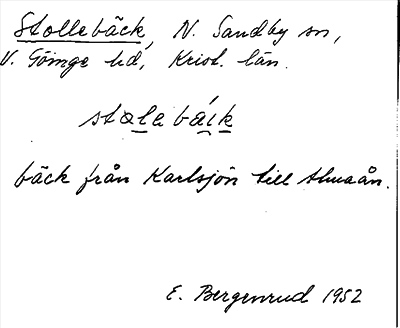 Stollebäck, N. Sandby sn,
V. Göinge hd, Krist. län.
stɑlebáik
bäck från Karlsjön till Almaån.
E. Bergenrud 1952